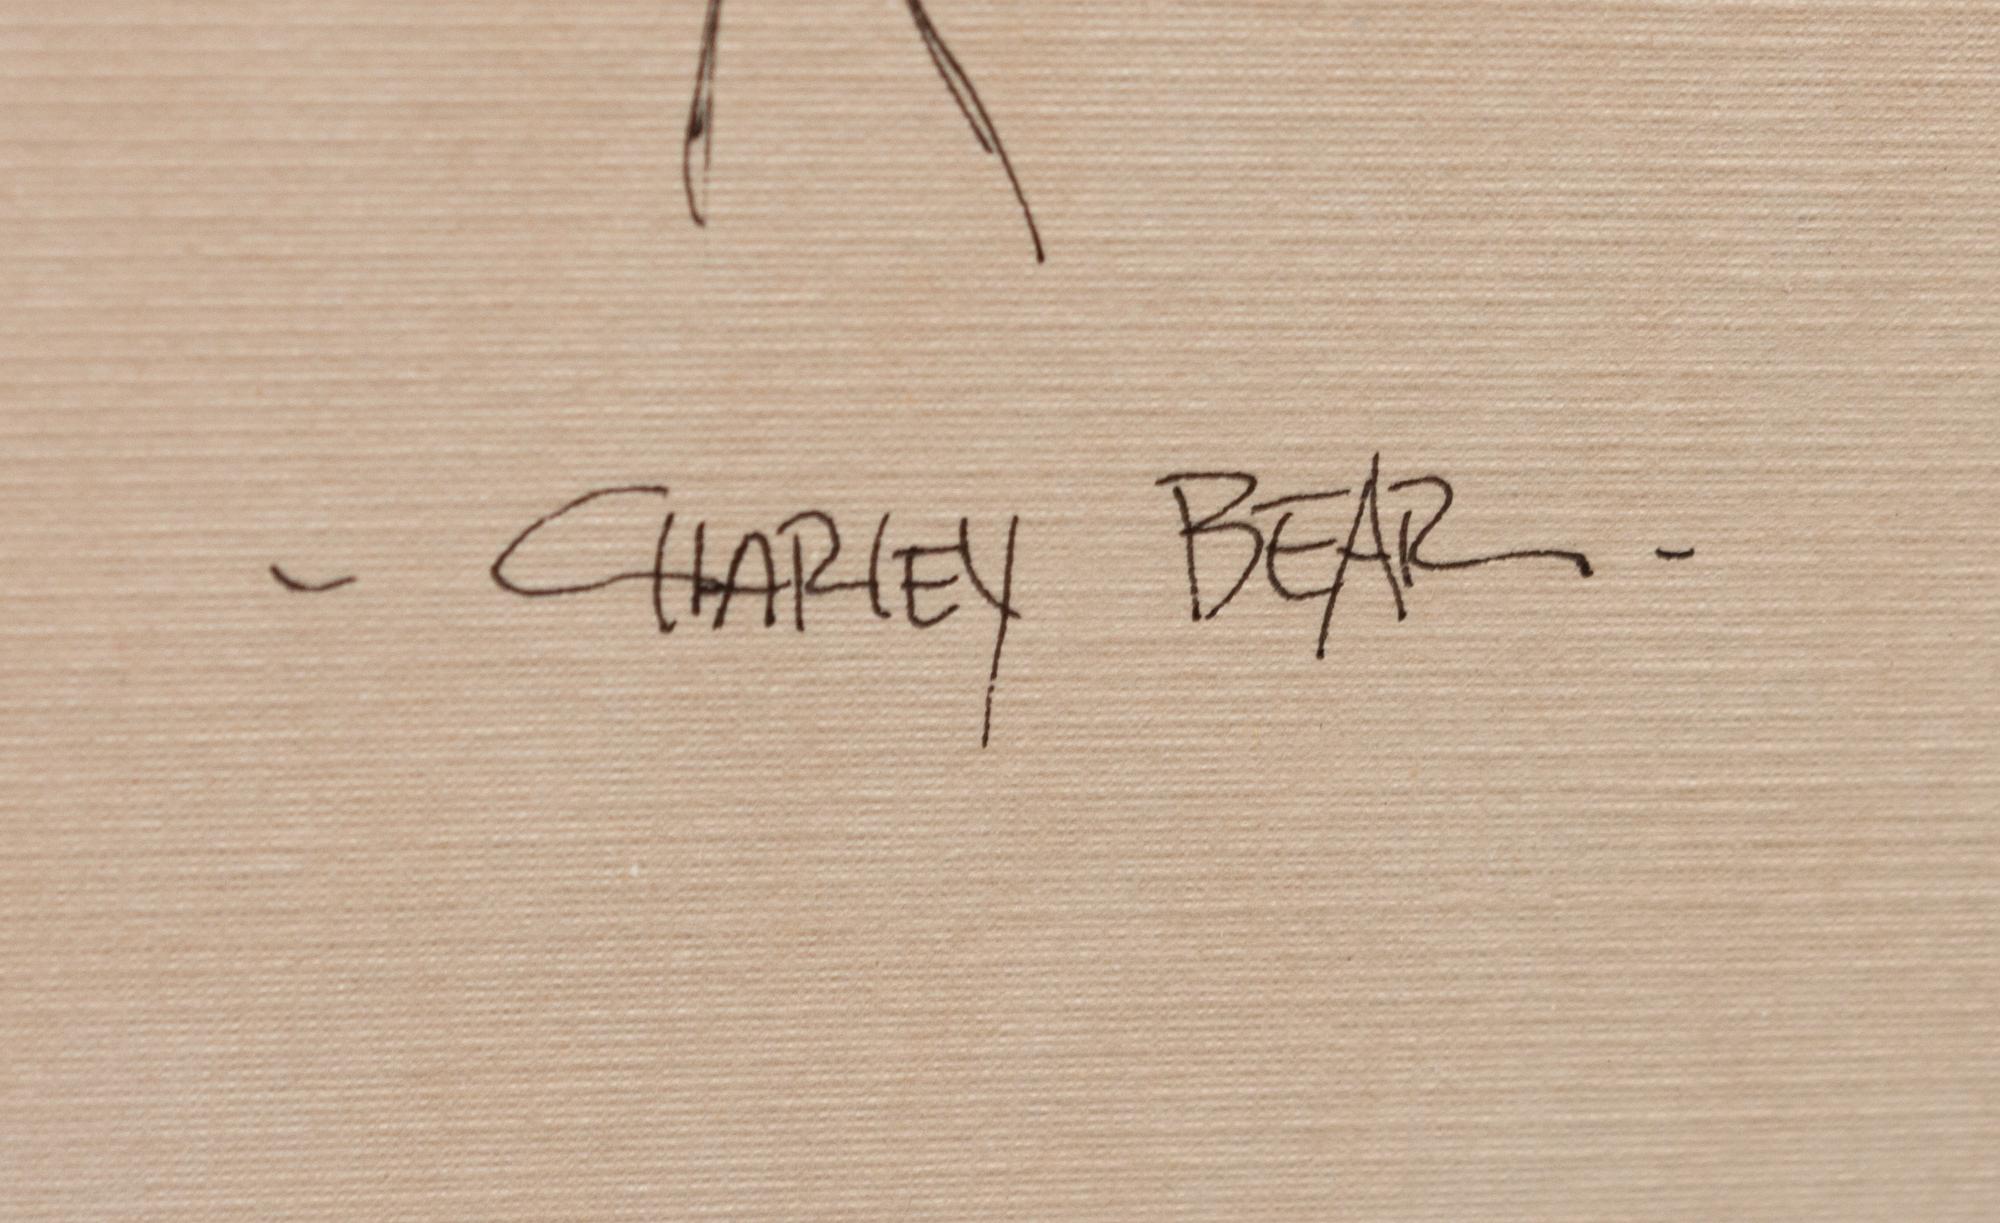 ~ CHARLEY BEAR -